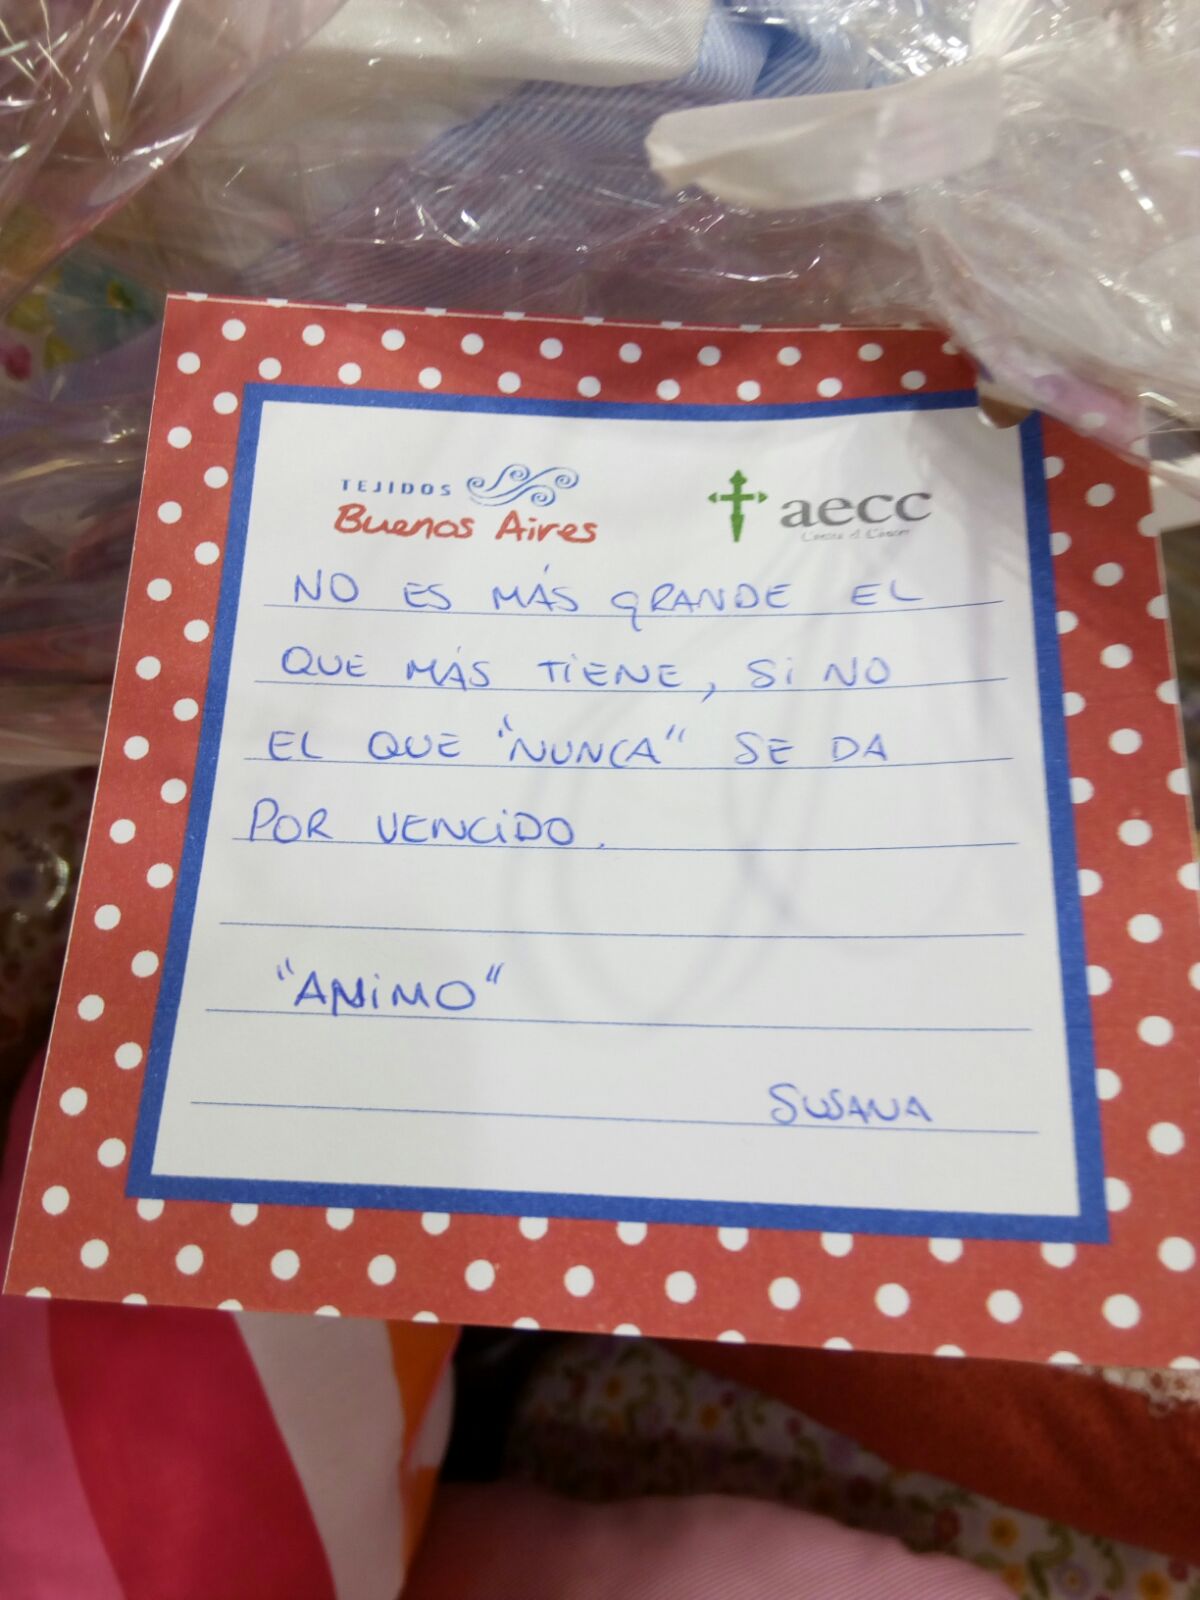 TEJIDOS
Buenos Aires
aecc
Contra el Cáncer
NO ES MÁS GRANDE EL
QUE MÁS TIENE, SI NO
EL QUE "NUNCA" SE DA
POR VENCIDO.
"ANIMO"
SUSANA